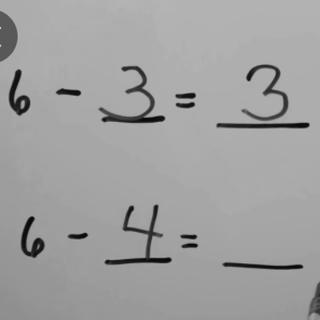 6 - 3 = 3
6 - 4 = __